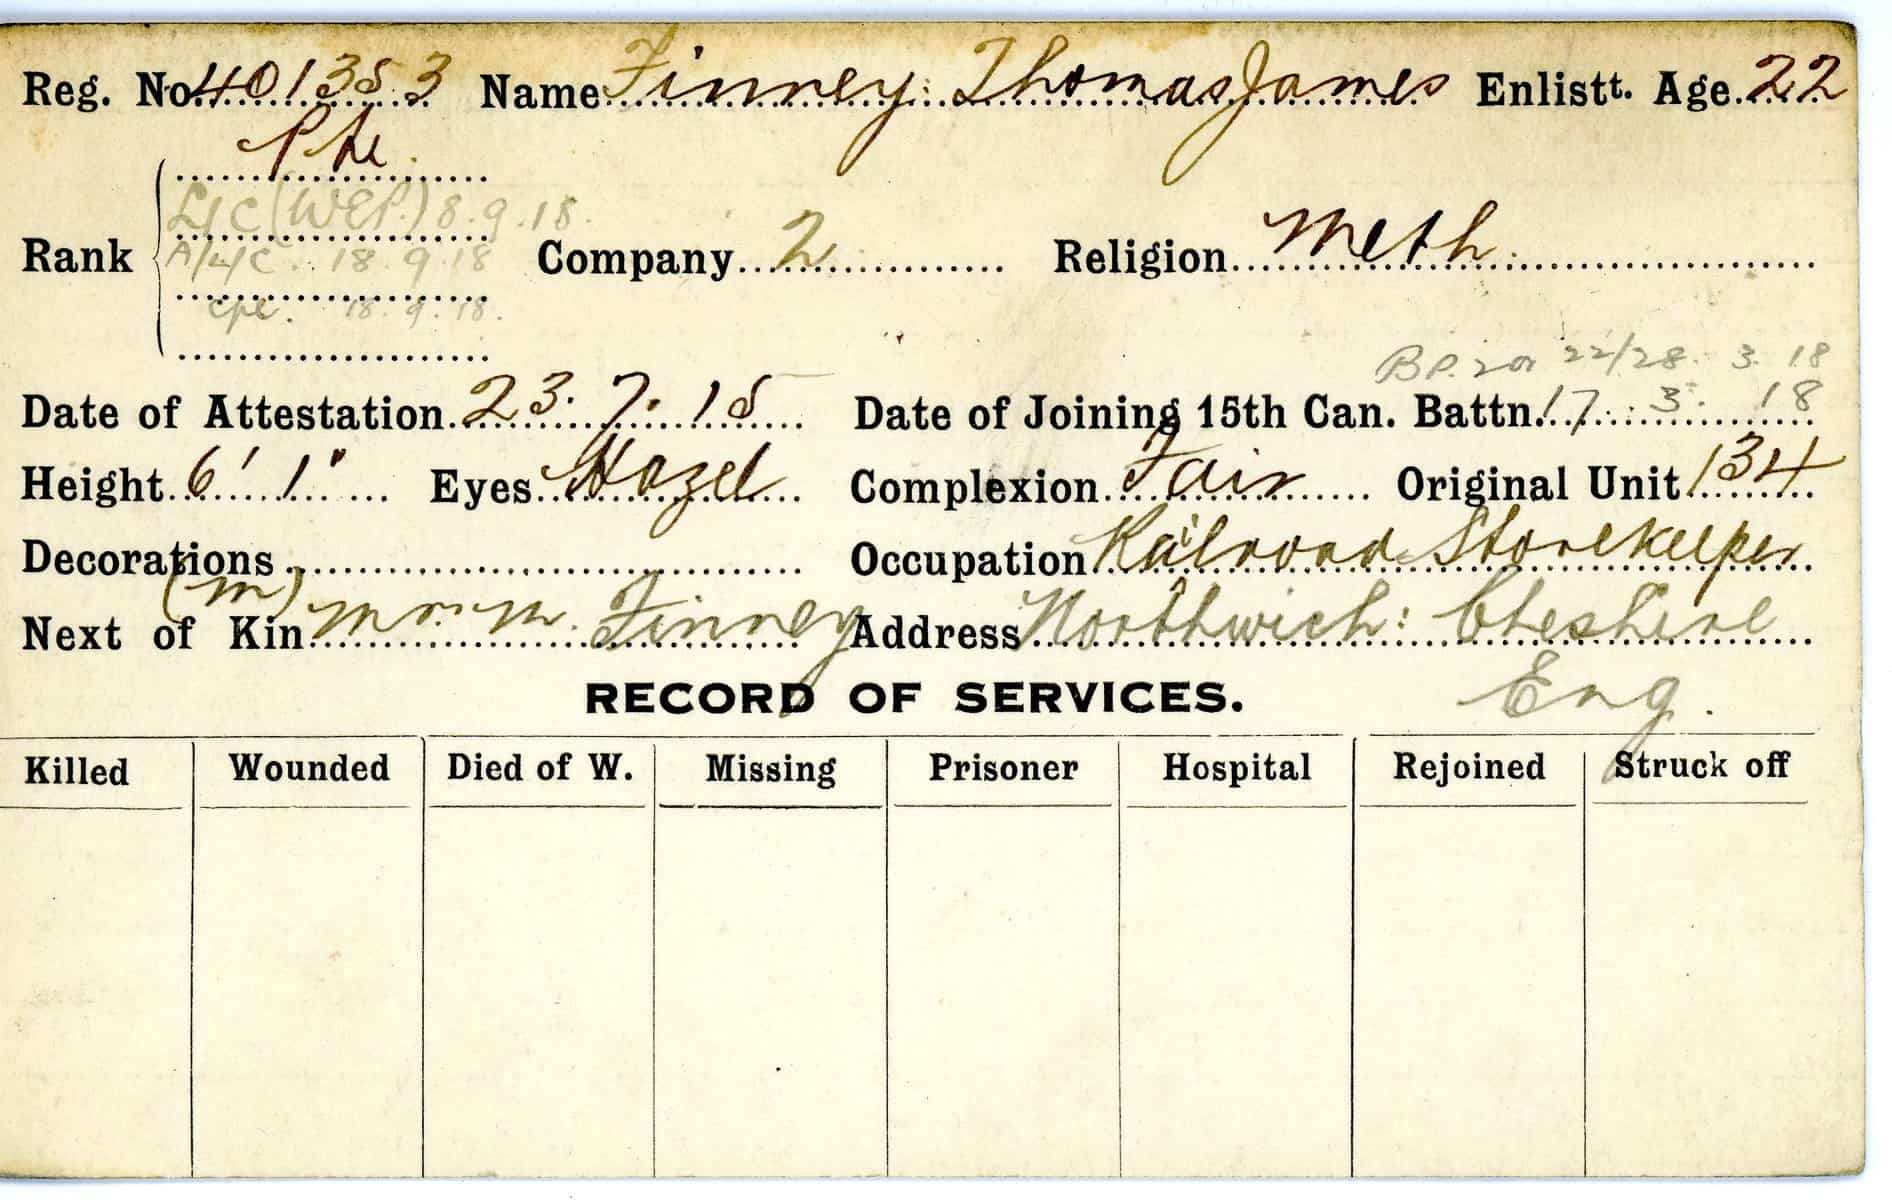 Reg. No. 401353 Name Finney: Thomas James Enlistt. Age. 22
Pte.
L/C (W.E.P.) 8.9.18.
Rank A/L/C. 18.9.18 Company 2 Religion Meth.
Cpl. 18.9.18.
B.P. 22/28. 3. 18
Date of Attestation. 23. 7. 15 Date of Joining 15th Can. Battn. 17. 3. 18
Height. 6' 1" Eyes. Hazel Complexion. Fair Original Unit 134
Decorations Occupation Railroad Storekeeper
(m)
Next of Kin Mrs. M. Finney Address Northwich: Cheshire
Eng.
RECORD OF SERVICES.
Killed Wounded Died of W. Missing Prisoner Hospital Rejoined Struck off